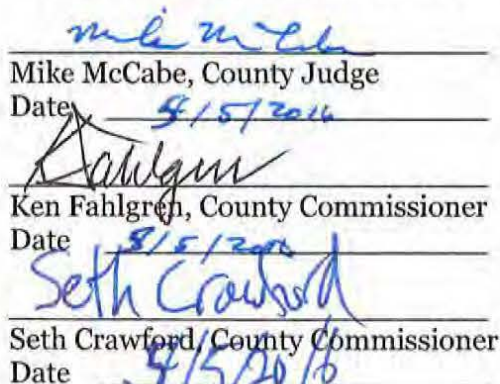 Mike McCabe
Mike McCabe, County Judge
Date /5/2016
K Fahlgren
Ken Fahlgren, County Commissioner
Date /5/2016
Seth Crawford
Seth Crawford, County Commissioner
Date /5/2016